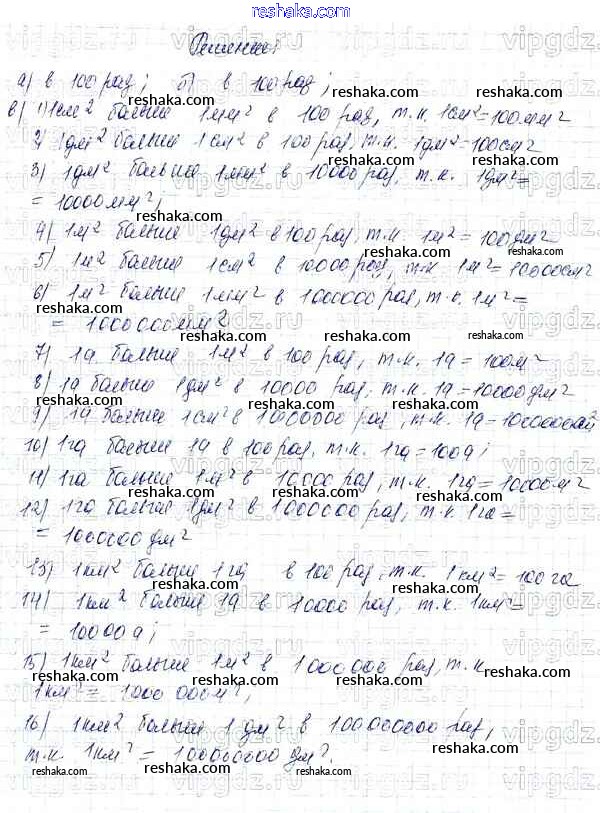 reshaka.com
Решение:
а) в 100 раз; б) в 100 раз;
в) 1) 1см² больше 1мм² в 100 раз, т.к. 1см²=100мм²
2) 1дм² больше 1см² в 100 раз, т.к. 1дм²=100см²
3) 1дм² больше 1мм² в 10000 раз, т.к. 1дм²=
= 10000мм²;
4) 1м² больше 1дм² в 100 раз, т.к. 1м²=100дм²
5) 1м² больше 1см² в 10000 раз, т.к. 1м²=10000см²
6) 1м² больше 1мм² в 1000000 раз, т.к. 1м²=
= 1000000мм²
7) 1а больше 1м² в 100 раз, т.к. 1а=100м²
8) 1а больше 1дм² в 10000 раз, т.к. 1а=10000дм²
9) 1а больше 1см² в 1000000 раз, т.к. 1а=1000000см²
10) 1га больше 1а в 100 раз, т.к. 1га=100а;
11) 1га больше 1м² в 10000 раз, т.к. 1га=10000м²
12) 1га больше 1дм² в 1000000 раз, т.к. 1га=
= 1000000дм²
13) 1км² больше 1га в 100 раз, т.к. 1км²=100га
14) 1км² больше 1а в 10000 раз, т.к. 1км²=
= 10000а;
15) 1км² больше 1м² в 1000000 раз, т.к.
1км²= 1000 000м²;
16) 1км² больше 1 дм² в 100000000 раз,
т.к. 1км² = 100000000 дм².